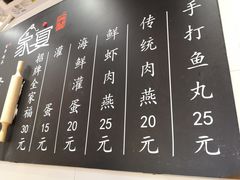 手打鱼丸 25元
传统肉燕 20元
鲜虾肉燕 25元
海鲜灌蛋 20元
灌蛋 15元
招牌全家福 30元